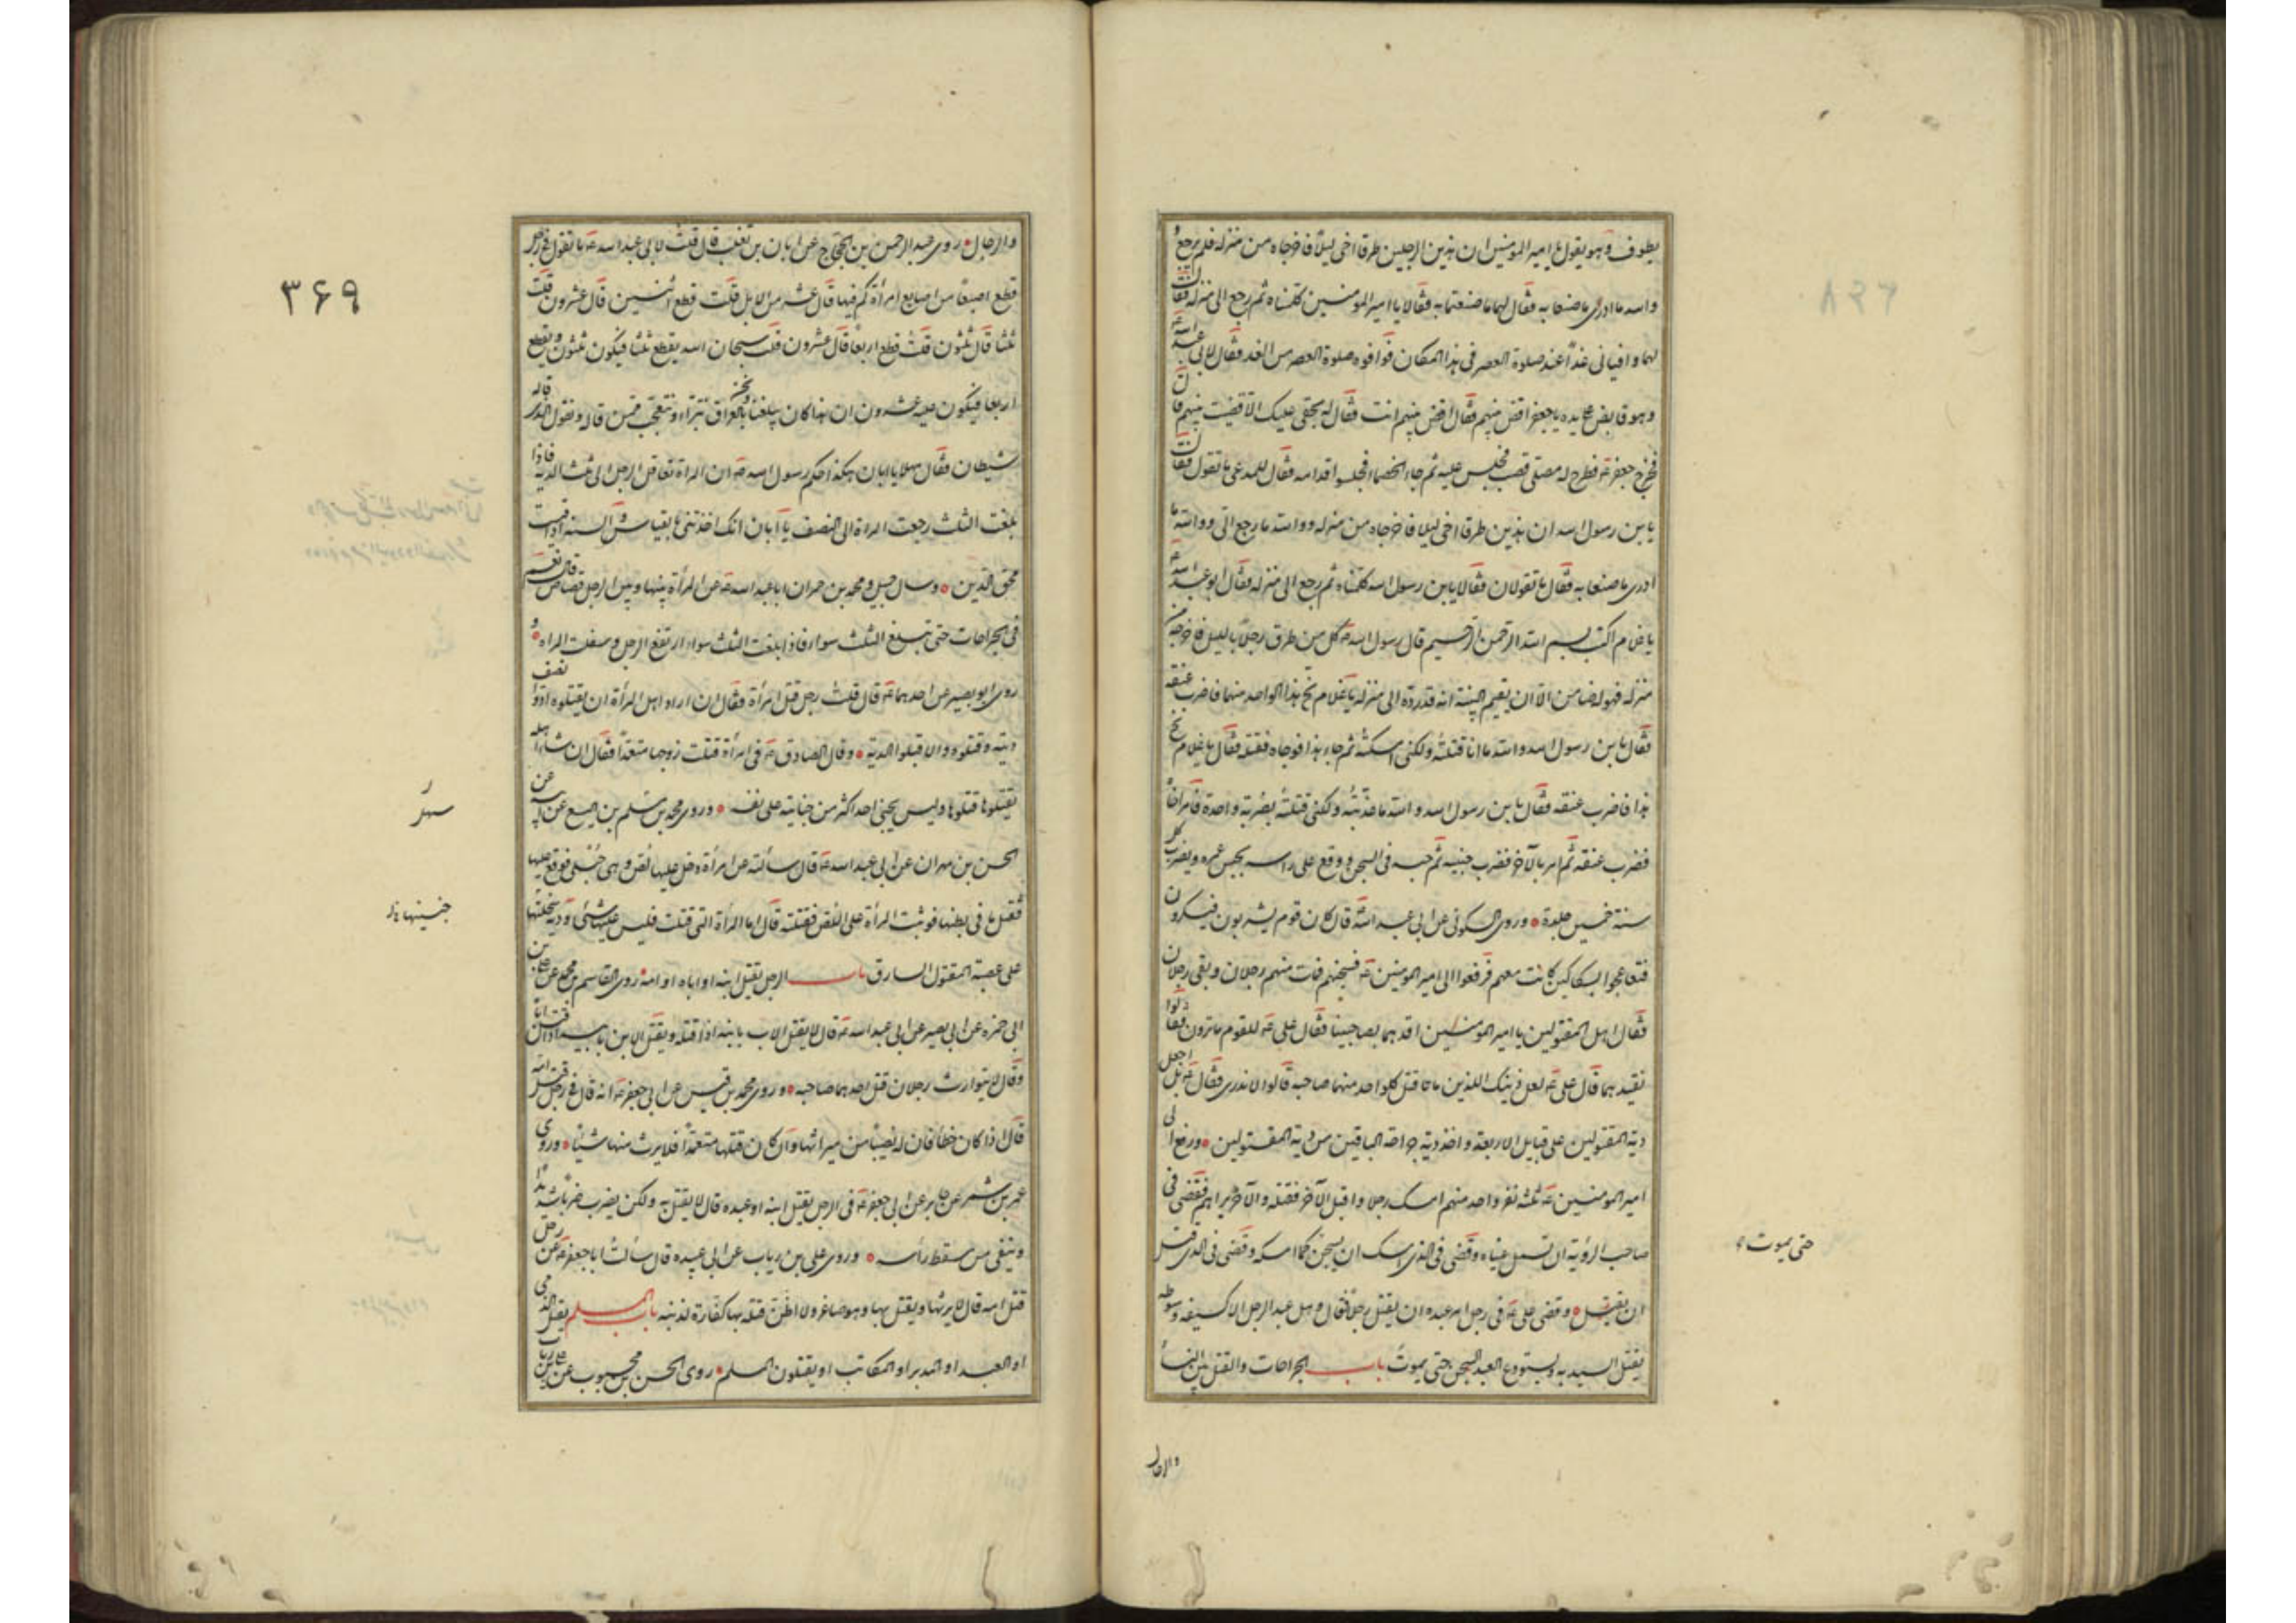 يطوف وهو يقول يا امير المومنين ان هذين الرجلين طرقا اخى ليلاً فاخرجاه من منزله فلم يرجع
والله ما ادرى ما صنعا به فقال لهما ما صنعتما به فقالا يا امير المومنين كلمناه ثم رجع الى منزله فقال
لهما وافيانى غداً عند صلوة العصر فى هذا المكان فوافوه صلوة العصر من الغد فقال لابى عبد الله
وهو قابض على يده يا جعفر اقض بينهم فقال اقض بينهم انت فقال له بحقى عليك الا قضيت بينهم قال
فخرج جعفر ع فطرح له مصلى قصب فجلس عليه ثم جاء الخصماء فجلسوا قدامه فقال للمدعى ما تقول فقال
يا بن رسول الله ان هذين طرقا اخى ليلا فاخرجاه من منزله ووالله ما رجع الى ووالله ما
ادرى ما صنعا به فقال ما تقولان فقالا يا بن رسول الله كلمناه ثم رجع الى منزله فقال ابو عبد الله
يا غلام اكتب بسم الله الرحمن الرحيم قال رسول الله ص كل من طرق رجلاً بالليل فاخرجه من
منزله فهو له ضامن الا ان يقيم البينة انه قد رده الى منزله يا غلام نح هذا الواحد منهما فاضرب عنقه
فقال يا بن رسول الله والله ما انا قتلته ولكنى امسكته ثم جاء هذا فوجاه فقتله فقال يا غلام نح
هذا فاضرب عنقه فقال يا بن رسول الله والله ما عذبته ولكنى قتلته بضربة واحدة فامر اخاه
فضرب عنقه ثم امر بالآخر فضرب جنبيه ثم حبسه فى السجن ووقع على راسه يحبس عمره ويضرب كل
سنة خمسين جلدة وروى السكونى عن ابى عبد الله قال كان قوم يشربون فيسكرون
فتباعجوا بسكاكين كانت معهم فرفعوا الى امير المومنين ع فسجنهم فمات منهم رجلان وبقى رجلان
فقال اهل المقتولين يا امير المومنين اقدهما بصاحبينا فقال على ع للقوم ما ترون فقالوا
نقيدهما قال على ع لعل ذينك اللذين ماتا قتل كلواحد منهما صاحبه قالوا لا ندرى فقال ع بل اجعل
دية المقتولين على قبايل الاربعة واخذ دية جراحة الباقين من دية المقتولين ورفع الى
امير المومنين ع ثلثة نفر واحد منهم امسك رجلا واقبل الآخر فقتله والآخر يراهم فقضى فى
صاحب الرؤية ان تسمل عيناه وقضى فى الذى امسك ان يسجن كما امسكه وقضى فى الذى قتل
ان يقتل وقضى على ع فى رجل امر عبده ان يقتل رجلاً فقال وهل عبد الرجل الا كسيفه وسوطه
يقتل السيد به ويستودع العبد السجن حتى يموت باب الجراحات والقتل بين النساء
حتى يموت
والرجال
والرجال روى عبد الرحمن بن الحجاج عن ابان بن تغلب قال قلت لابى عبد الله ع ما تقول فى رجل
قطع اصبعاً من اصابع امرأة كم فيها قال عشر من الابل قلت قطع اثنين قال عشرون قلت
ثلثا قال ثلثون قلت قطع اربعاً قال عشرون قلت سبحان الله يقطع ثلثا فيكون ثلثون ويقطع
اربعا فيكون عليه عشرون ان هذا كان يبلغنا ونحن بالعراق نتبراء ونتعجب ممن قاله ونقول الذى قاله
شيطان فقال مهلا يا ابان هكذا حكم رسول الله ص ان المراة تعاقل الرجل الى ثلث الدية فاذا
بلغت الثلث رجعت المراة الى النصف يا ابان انك اخذتنى بالقياس والسنة اذا قيست
محق الدين وسال جميل ومحمد بن حمران ابا عبد الله ع عن المرأة بينها وبين الرجل قصاص قال نعم
فى الجراحات حتى تبلغ الثلث سواء فاذا بلغت الثلث سواء ارتفع الرجل وسفلت المراه و
روى ابو بصير عن احدهما ع قال قلت رجل قتل امرأة فقال ان اراد اهل المرأة ان يقتلوه ادوا نصف
ديته وقتلوه والا قبلوا الدية وقال الصادق ع فى امرأة قتلت زوجها متعمداً فقال ان شاء اهله
يقتلوها قتلوها وليس يجنى احد اكثر من جنايته على نفسه وروى محمد بن اسلم بن جميع عن
الحسن بن مهران عن ابى عبد الله ع قال سالته عن امرأة دخل عليها لص وهى حبلى فوقع عليها
فقتل ما فى بطنها فوثبت المرأة على اللص فقتلته قال اما المرأة التى قتلت فليس عليها شئ ودية سخلتها
على عصبة المقتول السارق باب الرجل يقتل ابنه او اباه او امه روى القاسم بن محمد عن على بن
ابى حمزه عن ابى بصير عن ابى عبد الله ع قال لا يقتل الاب بابنه اذا قتله ويقتل الابن بابيه اذا قتل اباه
وقال لا يتوارث رجلان قتل احدهما صاحبه وروى محمد بن قيس عن ابى جعفر ع انه قال فى رجل قتل امه
قال اذا كان خطأ فان له نصيباً من ميراثها وان كان قتلها متعمداً فلا يرث منها شيئاً وروى
عمر بن شمر عن جابر عن ابى جعفر ع فى الرجل يقتل ابنه او عبده قال لا يقتل به ولكن يضرب ضرباً شديدا
وينفى من مسقط رأسه وروى على بن رياب عن ابى عبيده قال سألت ابا جعفر ع عن رجل
قتل امه قال لا يرثها ويقتل بها وهو صاغر ولا اظن قتله بها كفارة لذنبه باب المسلم يقتل الذمى
او العبد او المدبر او المكاتب او يقتلون المسلم روى الحسن بن محبوب عن على بن رياب
٣۶٩
جنينها